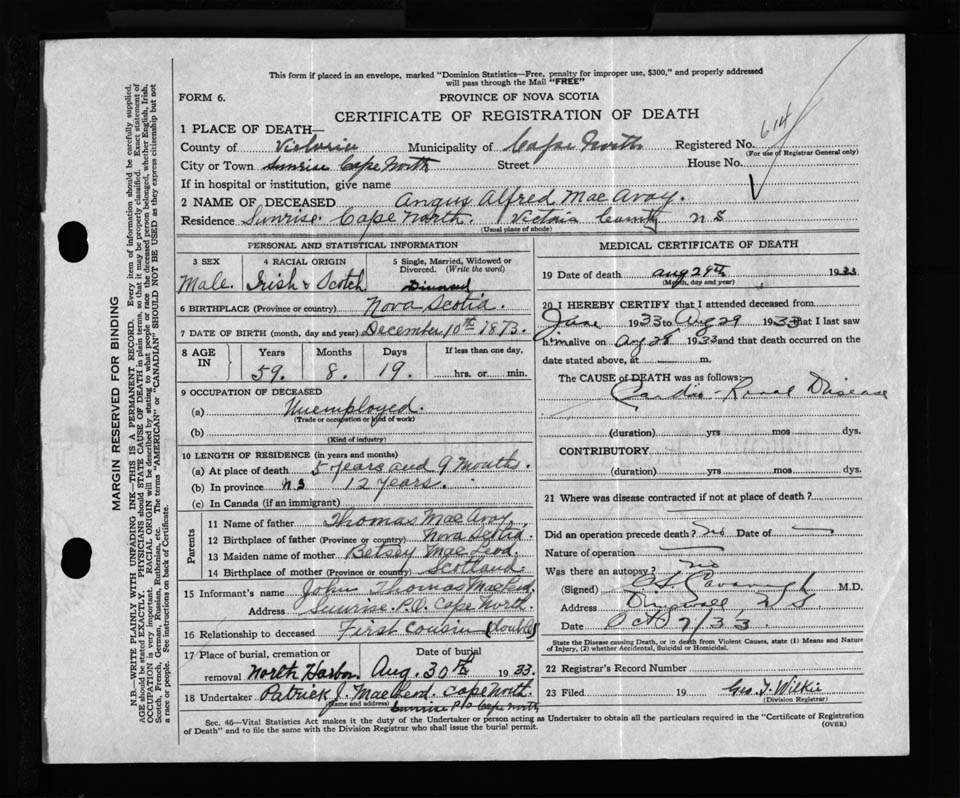 This form if placed in an envelope, marked "Dominion Statistics—Free, penalty for improper use, $300," and properly addressed
will pass through the Mail "FREE"
FORM 6.
PROVINCE OF NOVA SCOTIA
CERTIFICATE OF REGISTRATION OF DEATH
614
1 PLACE OF DEATH—
County of Victoria Municipality of Cape North Registered No.
(For use of Registrar General only)
City or Town Sunrise Cape North Street House No.
If in hospital or institution, give name
2 NAME OF DECEASED Angus Alfred MacAvoy.
Residence Sunrise Cape North. Victoria County N S
(Usual place of abode)
PERSONAL AND STATISTICAL INFORMATION
3 SEX
Male.
4 RACIAL ORIGIN
Irish & Scotch
5 Single, Married, Widowed or
Divorced. (Write the word)
6 BIRTHPLACE (Province or country) Nova Scotia.
7 DATE OF BIRTH (month, day and year) December 10th 1873.
8 AGE IN
Years Months Days If less than one day,
59. 8. 19. hrs. or min.
9 OCCUPATION OF DECEASED
(a) Unemployed.
(Trade or occupation or kind of work)
(b)
(Kind of industry)
10 LENGTH OF RESIDENCE (in years and months)
(a) At place of death 5 years and 9 Months.
(b) In province N S 12 years.
(c) In Canada (if an immigrant)
Parents
11 Name of father Thomas MacAvoy.
12 Birthplace of father (Province or country) Nova Scotia.
13 Maiden name of mother Betsey MacLeod.
14 Birthplace of mother (Province or country) Scotland.
15 Informant's name John Thomas MacLeod.
Address Sunrise. P.O. Cape North.
16 Relationship to deceased First cousin (double)
17 Place of burial, cremation or Date of burial
removal North Harbor. Aug. 30th 1933.
18 Undertaker Patrick J. MacLeod. Cape North.
(Name and address) Sunrise P O Cape North
MEDICAL CERTIFICATE OF DEATH
19 Date of death Aug 29th 1933
(Month, day and year)
20 I HEREBY CERTIFY that I attended deceased from
June 1933 to Aug 29 1933 that I last saw
him alive on Aug 28 1933 and that death occurred on the
date stated above, at m.
The CAUSE of DEATH was as follows:
Cardio Renal Disease
(duration) yrs mos dys.
CONTRIBUTORY
(duration) yrs mos dys.
21 Where was disease contracted if not at place of death?
Did an operation precede death? No Date of
Nature of operation
Was there an autopsy? No
(Signed) M.D.
Address N S
Date Oct 2/33
State the Disease causing Death, or in death from Violent Causes, state (1) Means and Nature
of Injury, (2) whether Accidental, Suicidal or Homicidal.
22 Registrar's Record Number
23 Filed 19 Geo. T. Wilkie
(Division Registrar)
Sec. 46—Vital Statistics Act makes it the duty of the Undertaker or person acting as Undertaker to obtain all the particulars required in the "Certificate of Registration
of Death" and to file the same with the Division Registrar who shall issue the burial permit.
(OVER)
MARGIN RESERVED FOR BINDING
N.B.—WRITE PLAINLY WITH UNFADING INK—THIS IS A PERMANENT RECORD. Every item of information should be carefully supplied.
AGE should be stated EXACTLY. PHYSICIANS should STATE CAUSE OF DEATH in plain terms, so that it may be properly classified. Exact statement of
OCCUPATION is very important. RACIAL ORIGIN will be described by stating to what people or race the deceased person belonged, whether English, Irish,
Scotch, French, German, Russian, Ruthenian, etc. The terms "AMERICAN" or "CANADIAN" SHOULD NOT BE USED as they express citizenship but not
a race or people. See instructions on back of Certificate.